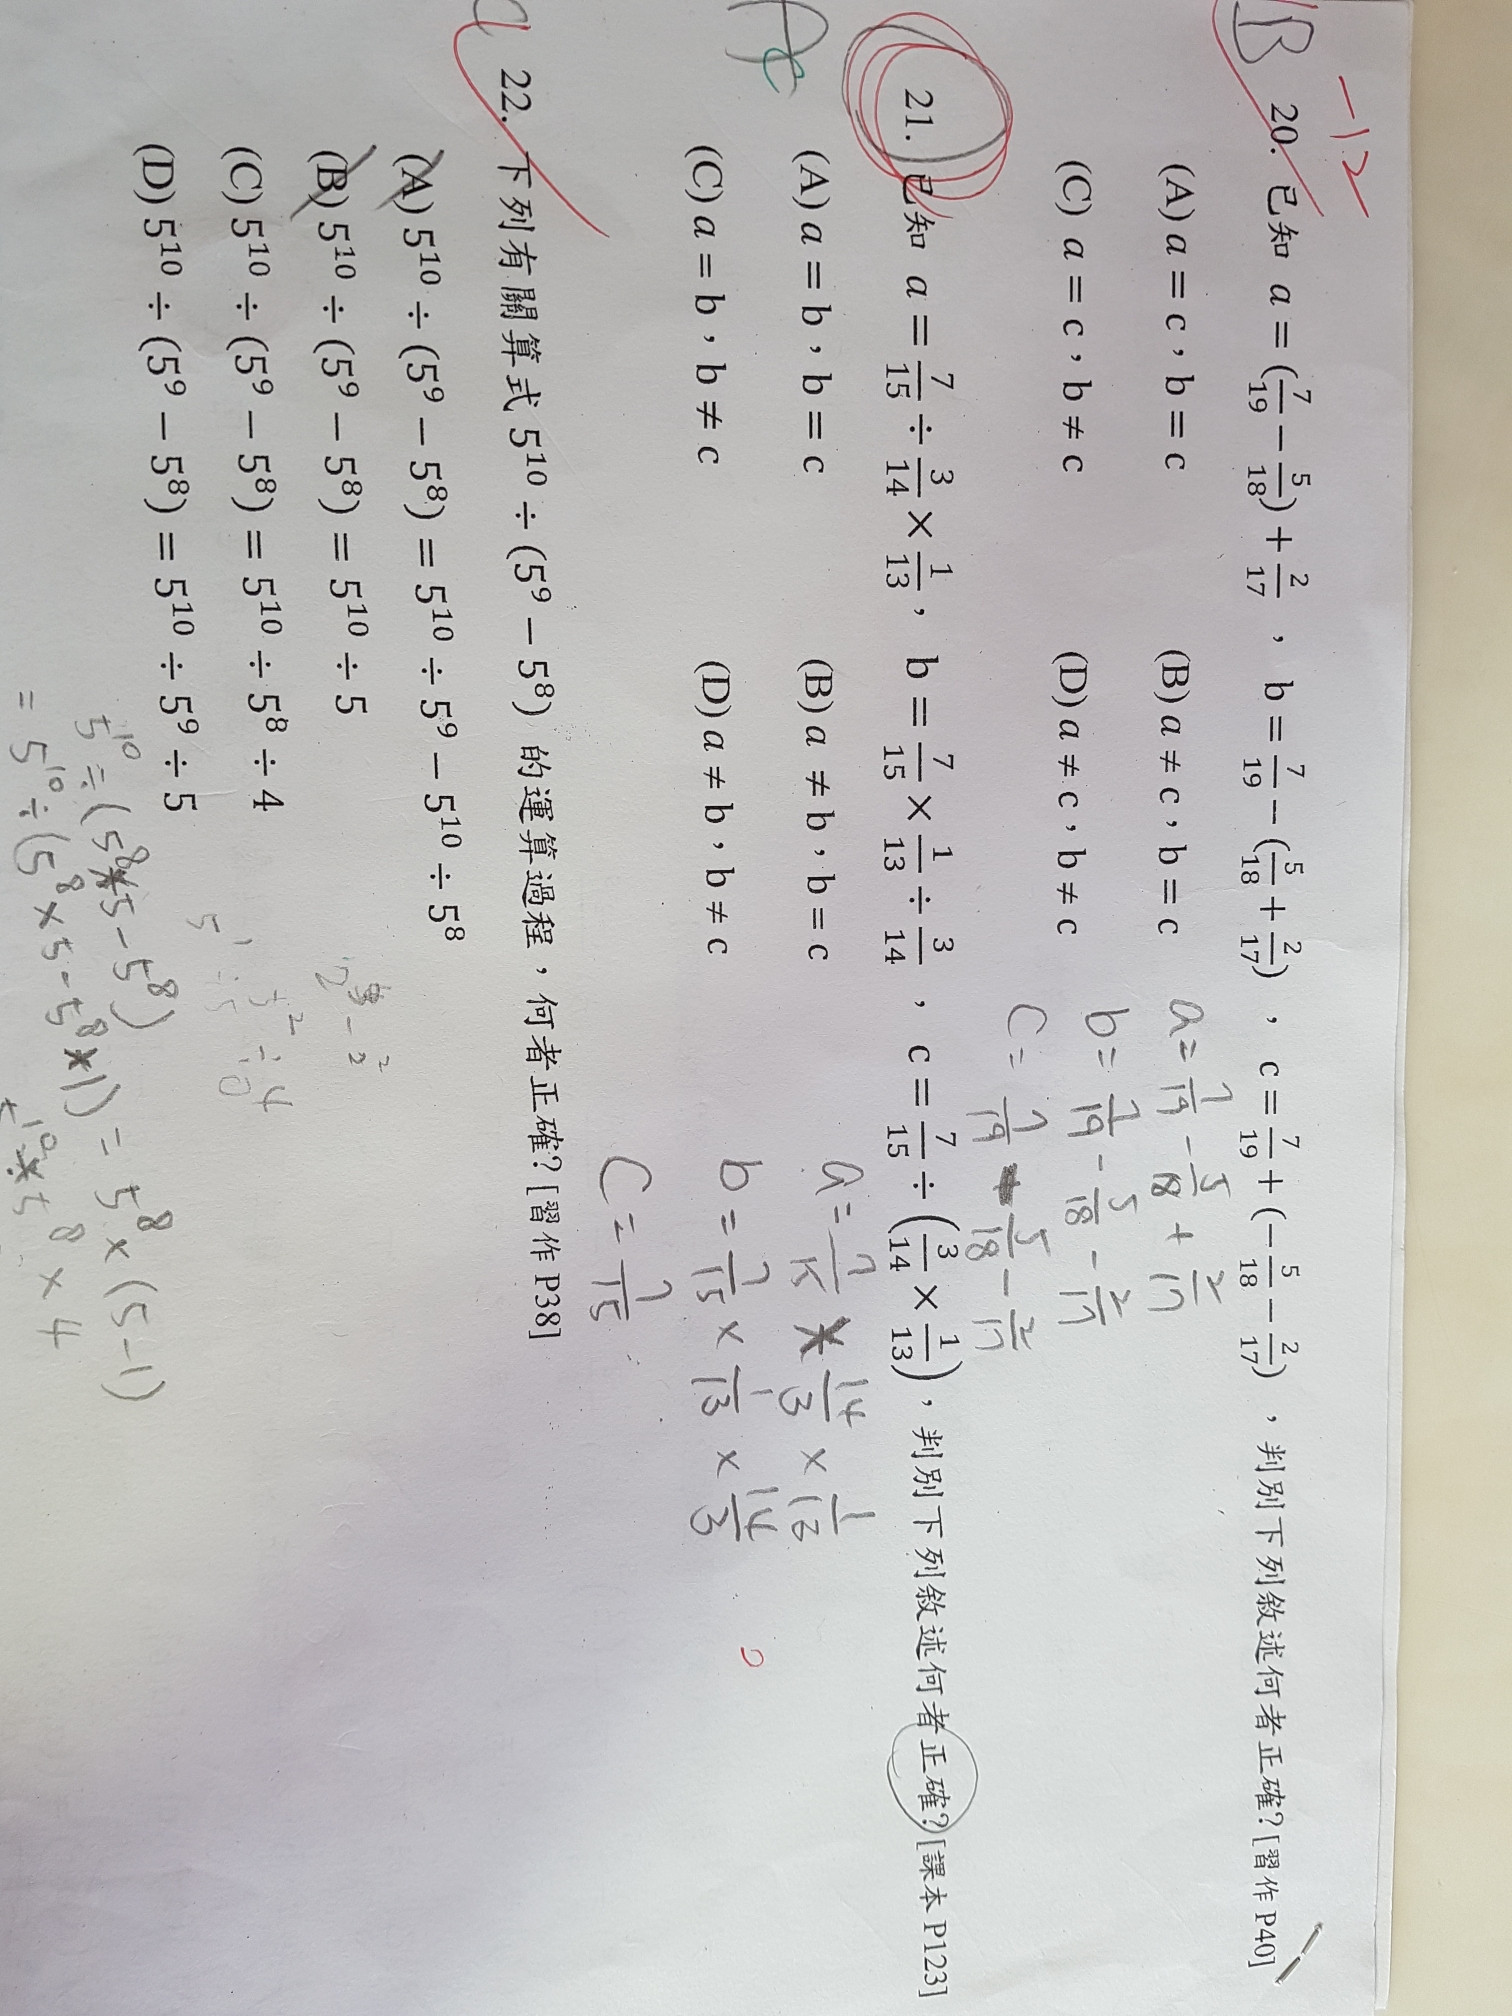 -12
B 20. 已知 a = (7/19 − 5/18) + 2/17 , b = 7/19 − (5/18 + 2/17) , c = 7/19 + (−5/18 − 2/17) , 判別下列敘述何者正確? [習作 P40]
(A) a = c , b = c (B) a ≠ c , b = c
(C) a = c , b ≠ c (D) a ≠ c , b ≠ c
a = 7/19 − 5/18 + 2/17
b = 7/19 − 5/18 − 2/17
c = 7/19 − 5/18 − 2/17
21. 已知 a = 7/15 ÷ 3/14 × 1/13 , b = 7/15 × 1/13 ÷ 3/14 , c = 7/15 ÷ (3/14 × 1/13) , 判別下列敘述何者正確? [課本 P123]
(A) a = b , b = c (B) a ≠ b , b = c
(C) a = b , b ≠ c (D) a ≠ b , b ≠ c
A C
a = 7/15 × 14/3 × 1/13
b = 7/15 × 1/13 × 14/3
C = 7/15
22. 下列有關算式 5¹⁰ ÷ (5⁹ − 5⁸) 的運算過程 , 何者正確? [習作 P38]
(A) 5¹⁰ ÷ (5⁹ − 5⁸) = 5¹⁰ ÷ 5⁹ − 5¹⁰ ÷ 5⁸
(B) 5¹⁰ ÷ (5⁹ − 5⁸) = 5¹⁰ ÷ 5
(C) 5¹⁰ ÷ (5⁹ − 5⁸) = 5¹⁰ ÷ 5⁸ ÷ 4
(D) 5¹⁰ ÷ (5⁹ − 5⁸) = 5¹⁰ ÷ 5⁹ ÷ 5
5¹⁰ ÷ (5⁸×5 − 5⁸)
= 5¹⁰ ÷ (5⁸ × 5 − 5⁸ × 1) = 5⁸ × (5−1)